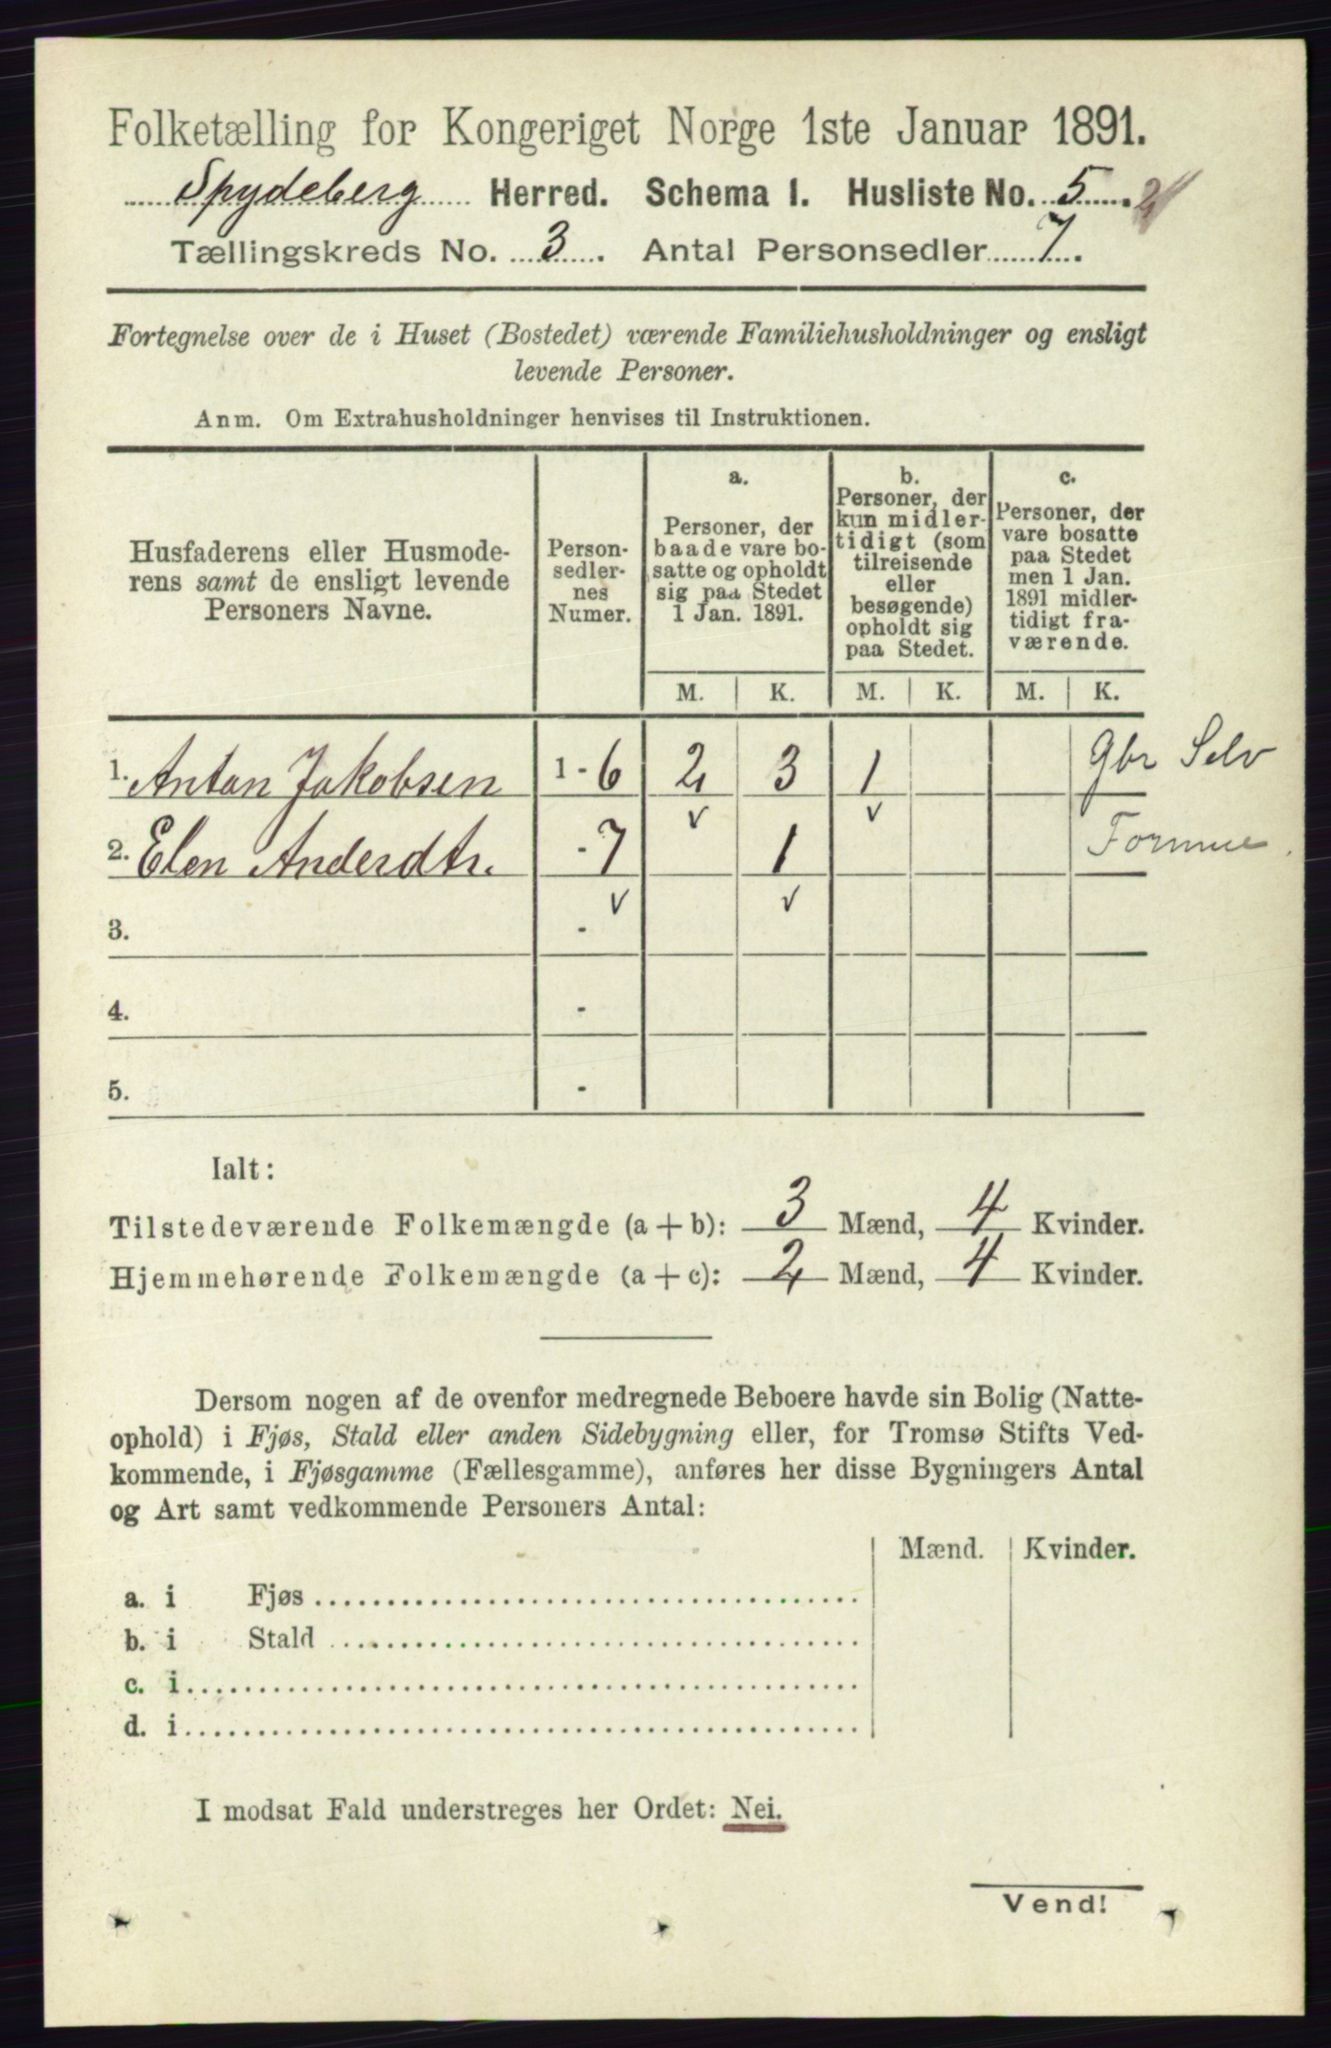 Folketælling for Kongeriget Norge 1ste Januar 1891.
Spydeberg Herred. Schema 1. Husliste No. 5 2
Tællingskreds No. 3. Antal Personsedler 7.
Fortegnelse over de i Huset (Bostedet) værende Familiehusholdninger og ensligt
levende Personer.
Anm. Om Extrahusholdninger henvises til Instruktionen.
Husfaderens eller Husmode-
rens samt de ensligt levende
Personers Navne.
Person-
sedler-
nes
Numer.
a.
Personer, der
baade vare bo-
satte og opholdt
sig paa Stedet
1 Jan. 1891.
b.
Personer, der
kun midler-
tidigt (som
tilreisende
eller
besøgende)
opholdt sig
paa Stedet.
c.
Personer, der
vare bosatte
paa Stedet
men 1 Jan.
1891 midler-
tidigt fra-
værende.
M. K. M. K. M. K.
1. Antan Jakobsen 1-6 2 3 1 Gbr Selv
2. Elen Anderdtr. -7 1 Formue
3. -
4. -
5. -
Ialt:
Tilstedeværende Folkemængde (a+b): 3 Mænd, 4 Kvinder.
Hjemmehørende Folkemængde (a+c): 2 Mænd, 4 Kvinder.
Dersom nogen af de ovenfor medregnede Beboere havde sin Bolig (Natte-
ophold) i Fjøs, Stald eller anden Sidebygning eller, for Tromsø Stifts Ved-
kommende, i Fjøsgamme (Fællesgamme), anføres her disse Bygningers Antal
og Art samt vedkommende Personers Antal:
Mænd. Kvinder.
a. i Fjøs
b. i Stald
c. i
d. i
I modsat Fald understreges her Ordet: Nei.
Vend!